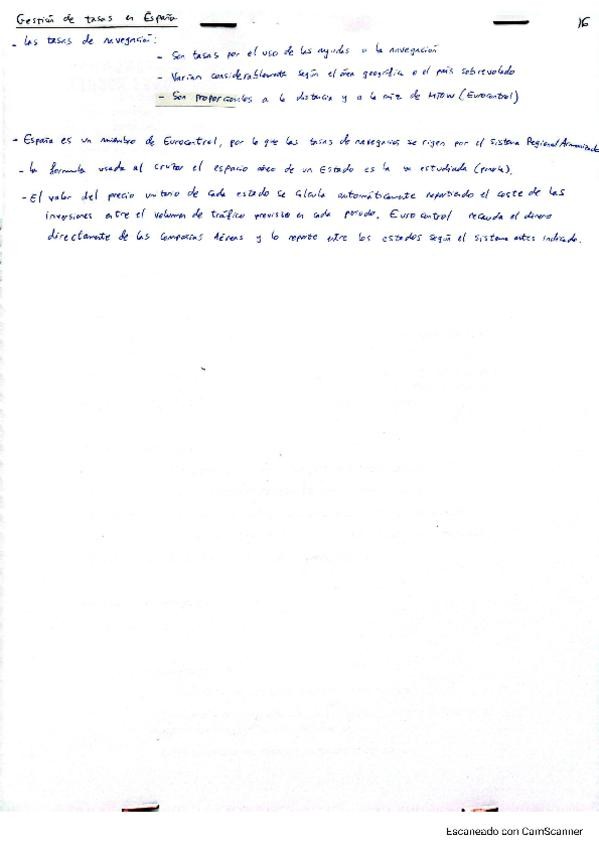 Gestión de tasas en España
16
- Las tasas de navegación:
- Son tasas por el uso de las ayudas a la navegación
- Varían considerablemente según el área geográfica o el país sobrevolado
- Son proporcionales a la distancia y a la raíz de MTOW (Eurocontrol)
- España es un miembro de Eurocontrol, por lo que las tasas de navegación se rigen por el Sistema Regional Armonizado
- La formula usada al cruzar el espacio aéreo de un Estado es la ya estudiada
- El valor del precio unitario de cada estado se calcula automáticamente repartiendo el coste de las
inversiones entre el volumen de tráfico previsto en cada periodo. Eurocontrol recauda el dinero
directamente de las Compañías Aéreas y lo reparte entre los estados según el sistema antes indicado.
Escaneado con CamScanner